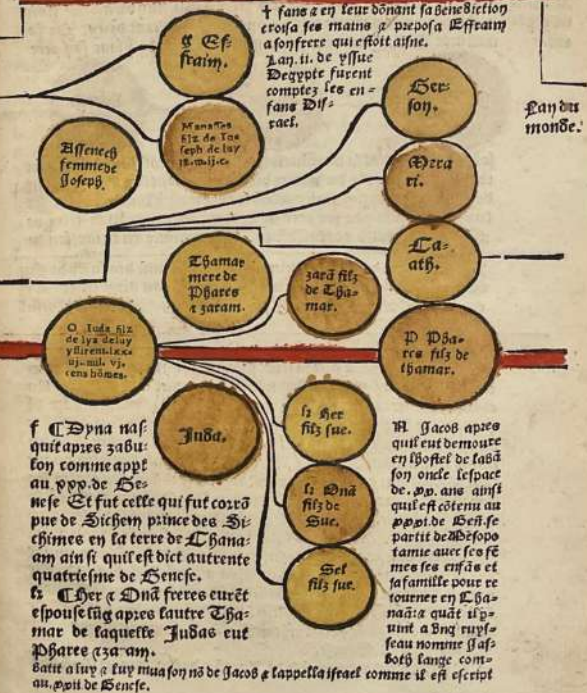 † fans ⁊ en leur dōnant sa benediction
croisa ses mains ⁊ preposa Effraim
a son frere qui estoit aisne.
Lan. ii. de yssue
Degypte furent
comptez les en=
fans Dis=
rael.
q Ef-
fraim.
Manasses
filz de Ios
seph de luy
Assenech
femme de
Joseph.
Ger-
son.
Lan du
monde.
Mera
ri.
Ca=
ath.
Thamar
mere de
Phares
⁊ zaram.
zarā filz
de Tha=
mar.
O Iuda filz
de lya de luy
yssirent. lxx-
uj. mil. vj.
cens hōmes.
P Pha=
res filz de
thamar.
Juda.
h Her
filz sue.
h Onā
filz de
Sue.
Sel
filz sue.
f ¶ Dyna nas=
quit apres zabu-
lon comme appt
au. xxx. de Ge=
nese Et fut celle qui fut corrō
pue de Sichem prince des Si=
chimes en la terre de Chana=
am ainsi quil est dict au trente
quatriesme de Genese.
h ¶ Her ⁊ Onā freres eurēt
espouse lūg apres lautre Tha=
mar de laquelle Judas eut
Phares ⁊ zaram.
N Jacob apres
quil eut demoure
en lhostel de labā
son oncle lespace
de. xx. ans ainsi
quil est cōtenu au
xxxi. de Gen̄. se
partit de Mesopo
tamie auec ses fē
mes ses enfās et
sa famille pour re
tourner en Cha=
naā: ⁊ quāt il p=
uint a vng ruys=
seau nomme Jas=
both lange com=
batit a luy ⁊ luy mua son nō de Jacob ⁊ lappella israel comme il est escript
au. xxxii de Genese.